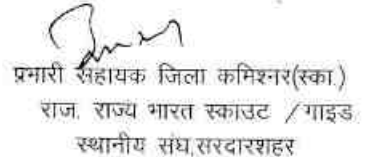 प्रभारी सहायक जिला कमिश्नर(स्का.)
राज. राज्य भारत स्काउट /गाइड
स्थानीय संघ,सरदारशहर